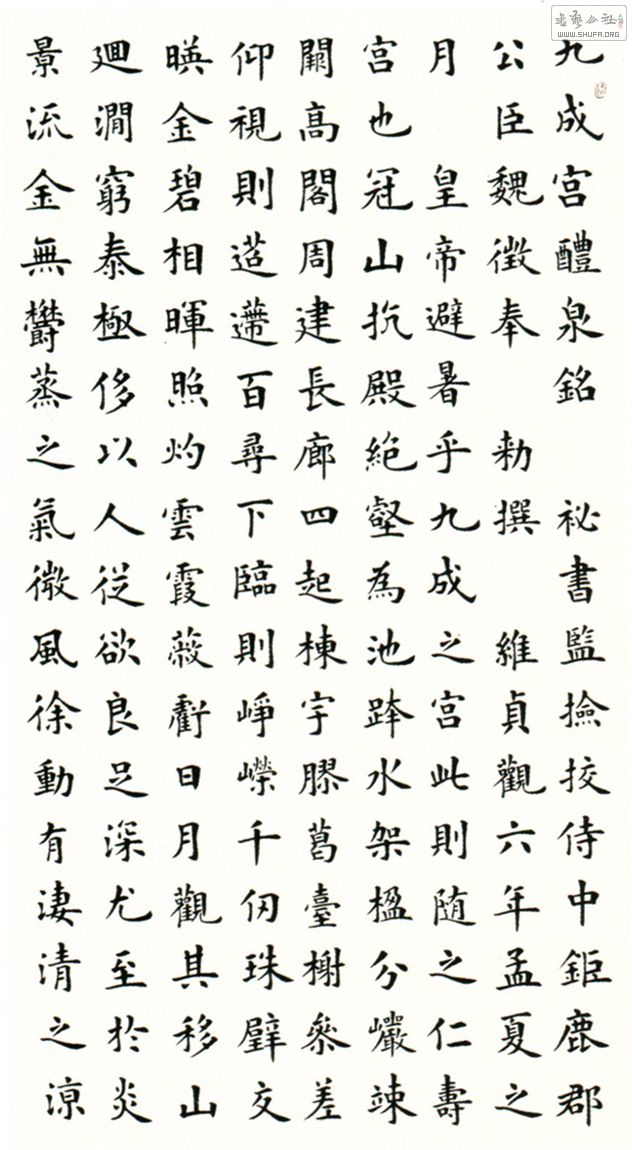 九成宮醴泉銘 祕書監撿挍侍中鉅鹿郡
公臣魏徵奉 勑撰 維貞觀六年孟夏之
月 皇帝避暑乎九成之宮此則随之仁壽
宮也冠山抗殿絶壑為池跨水架楹分巖竦
闕高閣周建長廊四起棟宇膠葛臺榭參差
仰視則迢遰百尋下臨則崢嶸千仞珠璧交
暎金碧相暉照灼雲霞蔽虧日月觀其移山
迴澗窮泰極侈以人從欲良足深尤至於炎
景流金無鬱蒸之氣微風徐動有淒清之涼
書藝公社
WWW.SHUFA.ORG